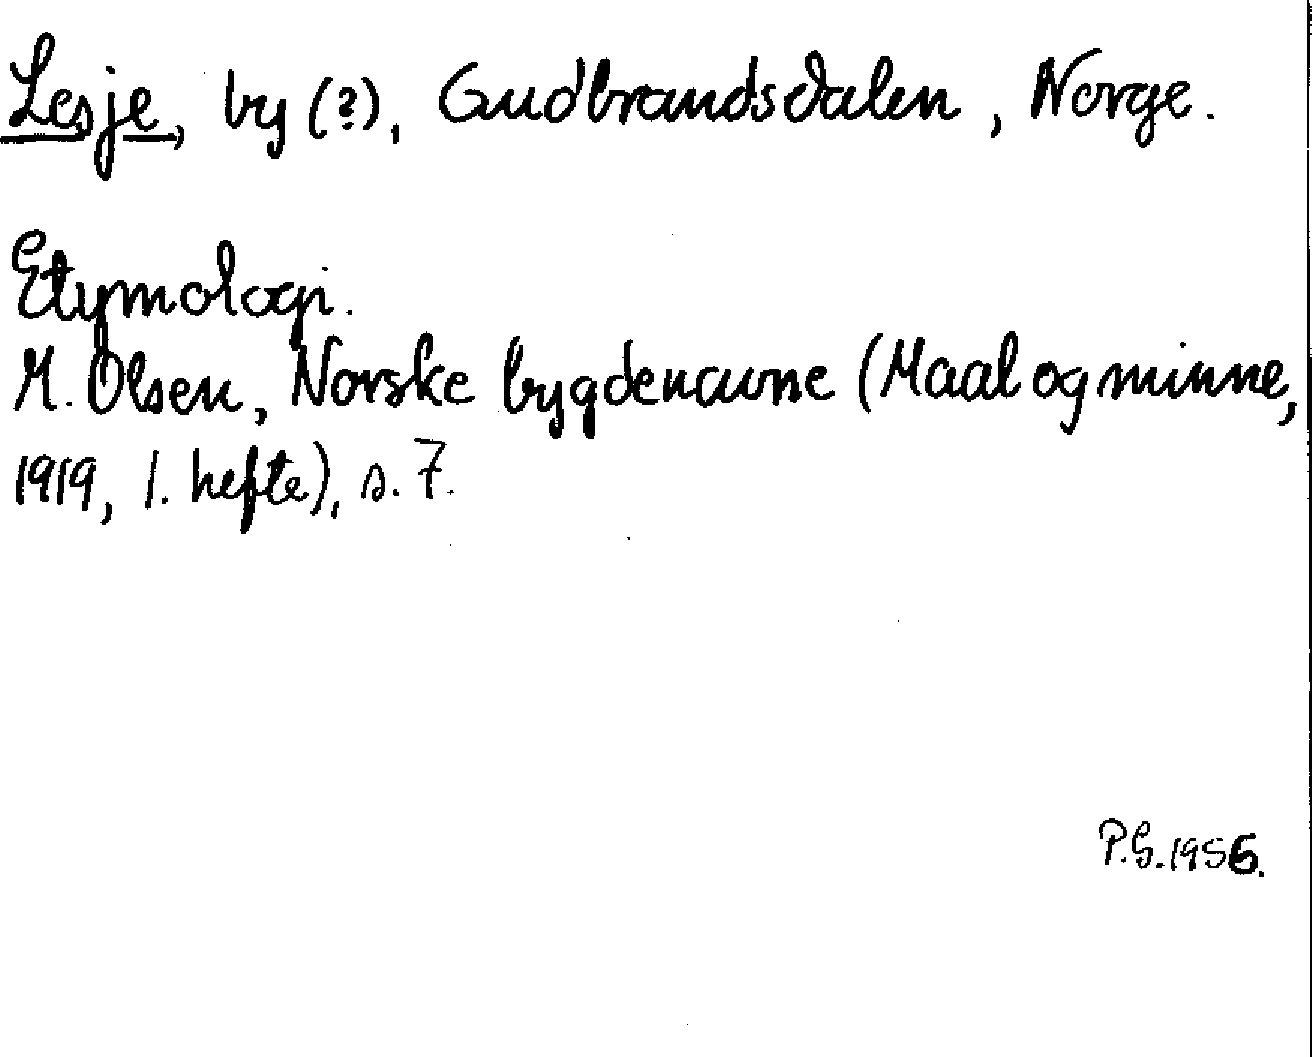 Lesje, by (?), Gudbrandsdalen, Norge.
Etymologi.
M. Olsen, Norske bygdenavne (Maal og minne,
1919, 1. hefte), s. 7.
P.G. 1956.